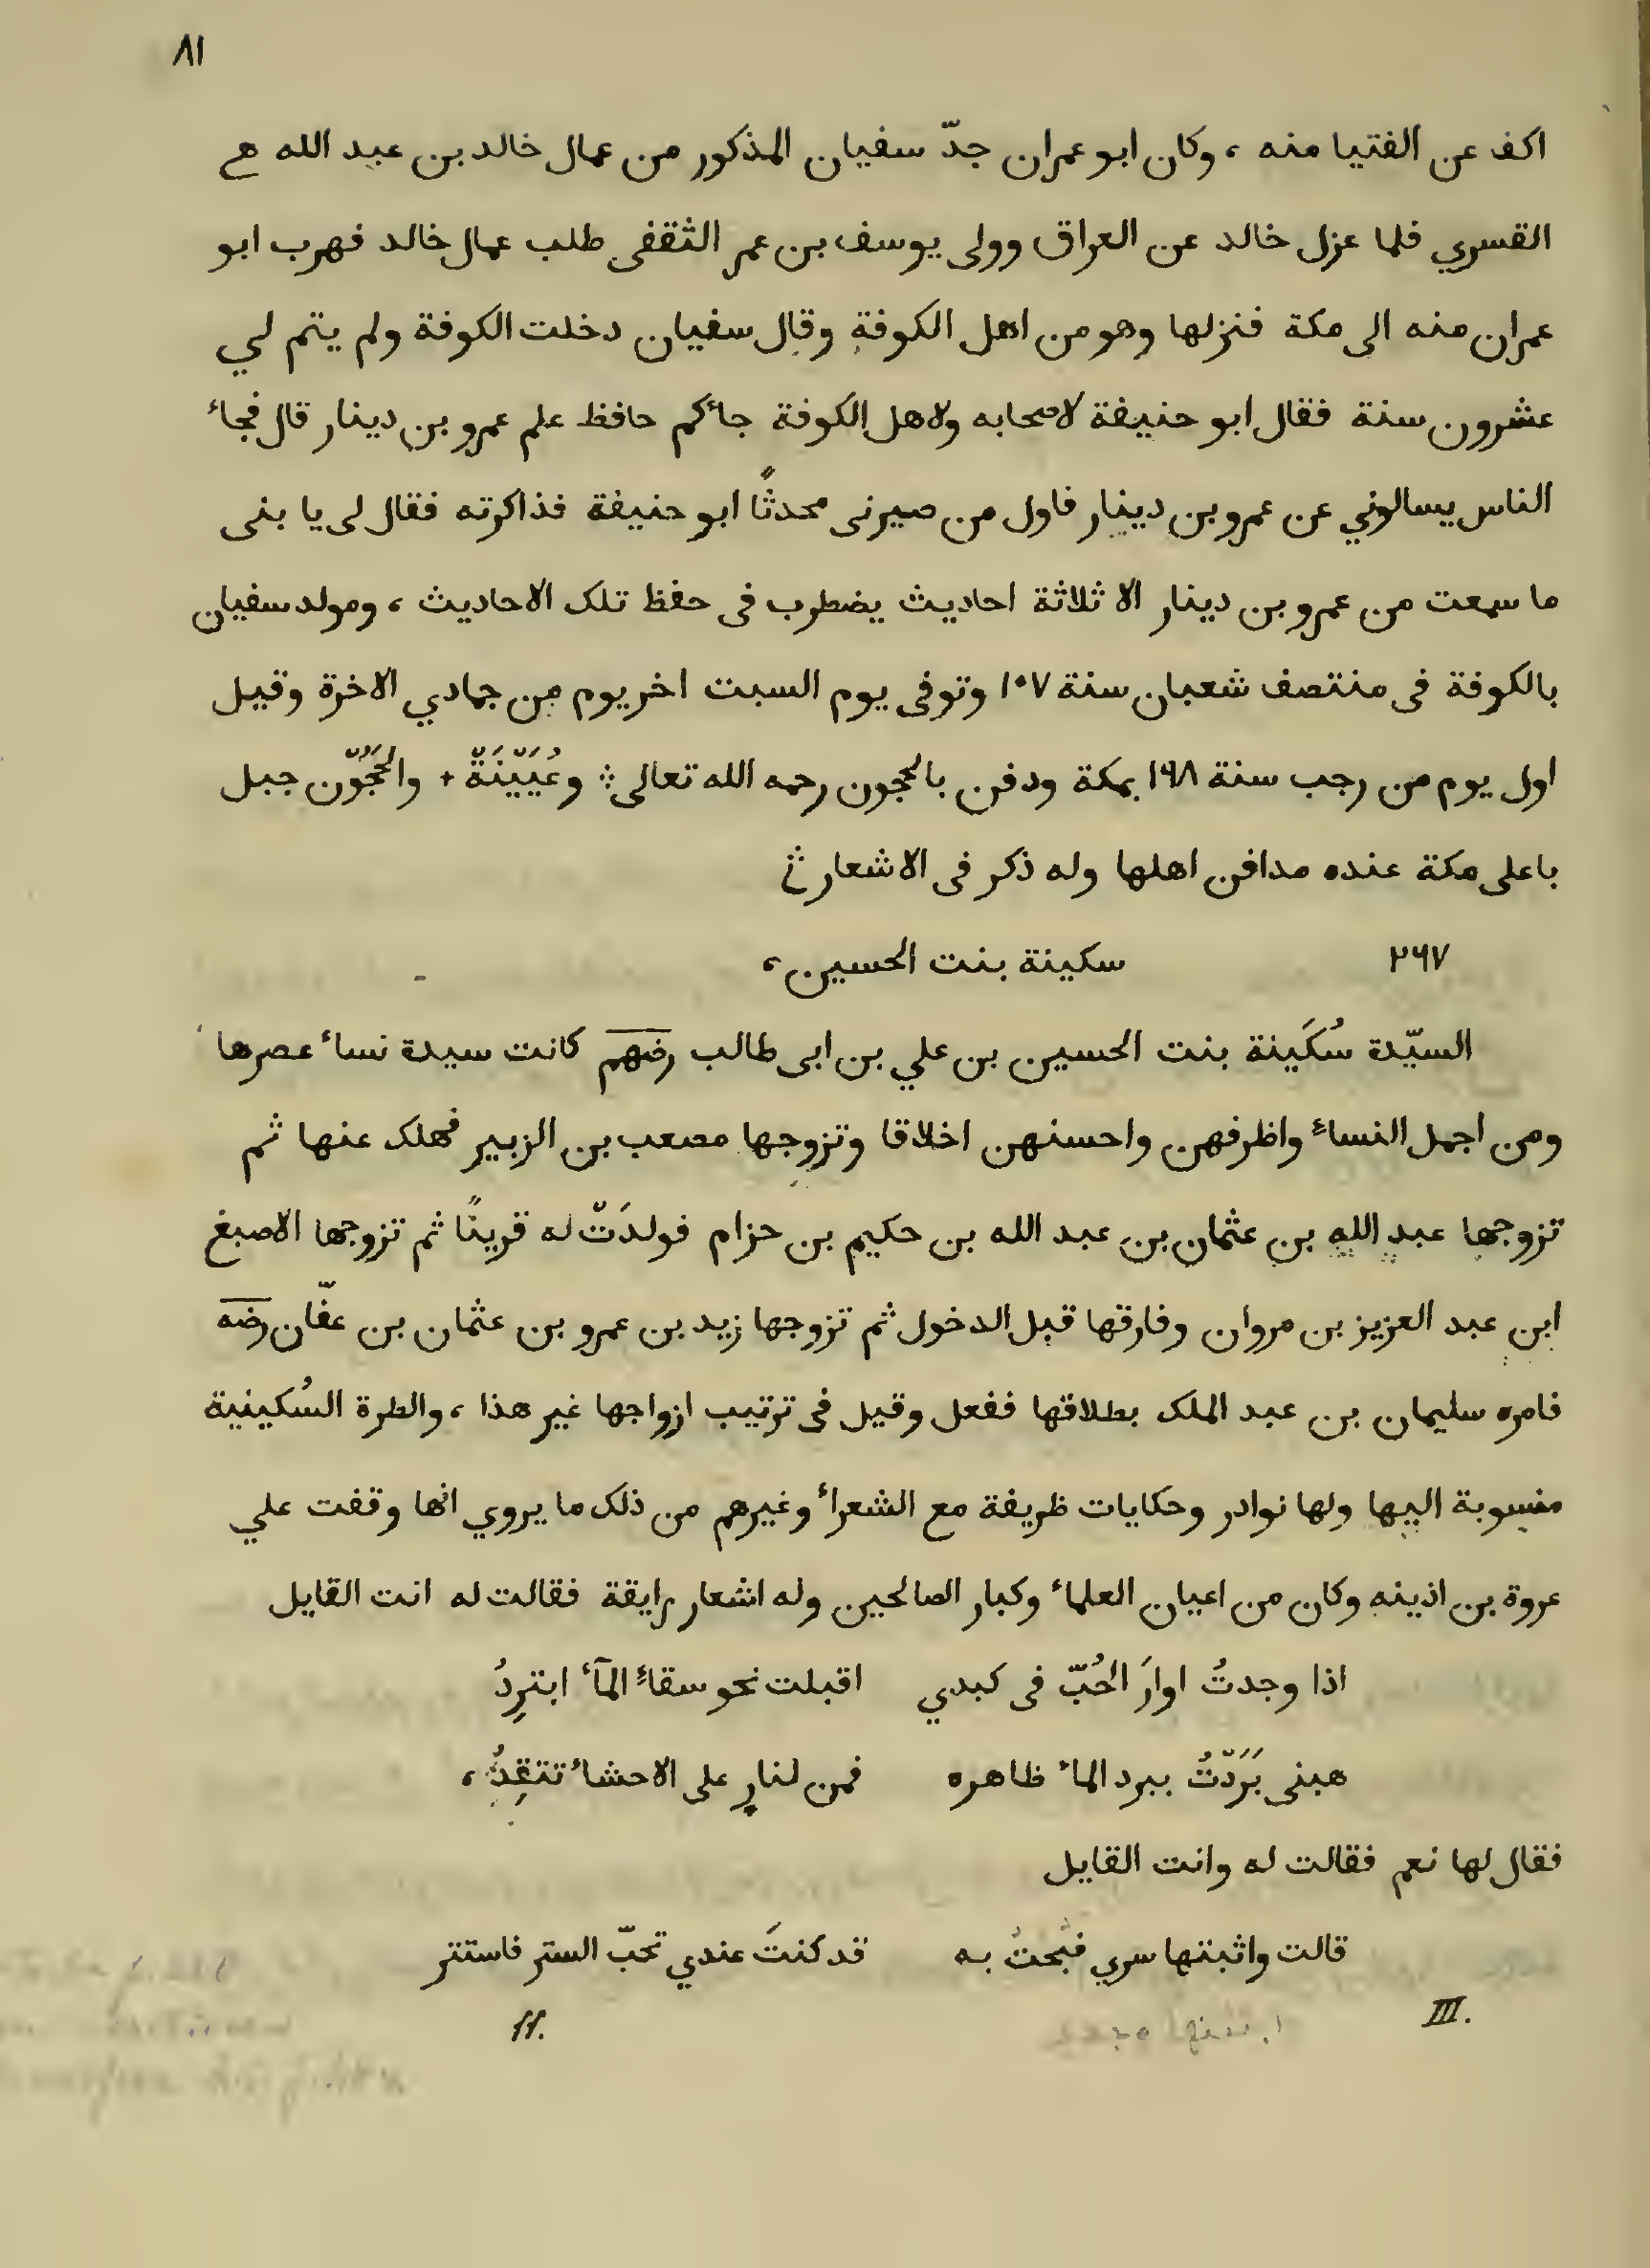 ٨١
اكف عن الفتيا منه ، وكان ابو عمران جدّ سفيان المذكور من عمال خالد بن عبد الله
القسري فلما عزل خالد عن العراق وولى يوسف بن عمر الثقفى طلب عمال خالد فهرب ابو
عمران منه الى مكة فنزلها وهو من اهل الكوفة وقال سفيان دخلت الكوفة ولم يتم لي
عشرون سنة فقال ابو حنيفة لاصحابه ولاهل الكوفة جاءكم حافظ علم عمرو بن دينار قال فجاء
الناس يسالوني عن عمرو بن دينار فاول من صيرنى محدثًا ابو حنيفة فذاكرته فقال لى يا بنى
ما سمعت من عمرو بن دينار الا ثلاثة احاديث يضطرب فى حفظ تلك الاحاديث ، ومولد سفيان
بالكوفة فى منتصف شعبان سنة ١٠٧ وتوفى يوم السبت اخر يوم من جمادي الاخرة وقيل
اول يوم من رجب سنة ١٩٨ بمكة ودفن بالحجون رحمه الله تعالى ؞ وعُيَيْنَةْ + والحَجُوْن جبل
باعلى مكة عنده مدافن اهلها وله ذكر فى الاشعار
٢٦٧ سكينة بنت الحسين ،
السيّدة سُكَينة بنت الحسين بن علي بن ابى طالب رضهم كانت سيدة نساء عصرها
ومن اجمل النساء واظرفهن واحسنهن اخلاقا وتزوجها مصعب بن الزبير فهلك عنها ثم
تزوجها عبد الله بن عثمان بن عبد الله بن حكيم بن حزام فولدَتْ له قرينًا ثم تزوجها الاصبغ
ابن عبد العزيز بن مروان وفارقها قبل الدخول ثم تزوجها زيد بن عمرو بن عثمان بن عفّان رضه
فامره سليمان بن عبد الملك بطلاقها ففعل وقيل فى ترتيب ازواجها غير هذا ، والطرة السُكينية
منسوبة اليها ولها نوادر وحكايات ظريفة مع الشعراء وغيرهم من ذلك ما يروي انها وقفت علي
عروة بن اذينه وكان من اعيان العلماء وكبار الصالحين وله اشعار رايقة فقالت له انت القايل
اذا وجدتُ اوارَ الحُبّ فى كبدي اقبلت نحو سقاء المآء ابتردُ
هبنى بَرَدْتُ ببرد الماء ظاهره فمن لنارٍ على الاحشاء تتقِدُ ،
فقال لها نعم فقالت له وانت القايل
قالت واثبتتها سري فبُحتُ به قد كنتَ عندي تحبّ الستر فاستتر
III. 11.